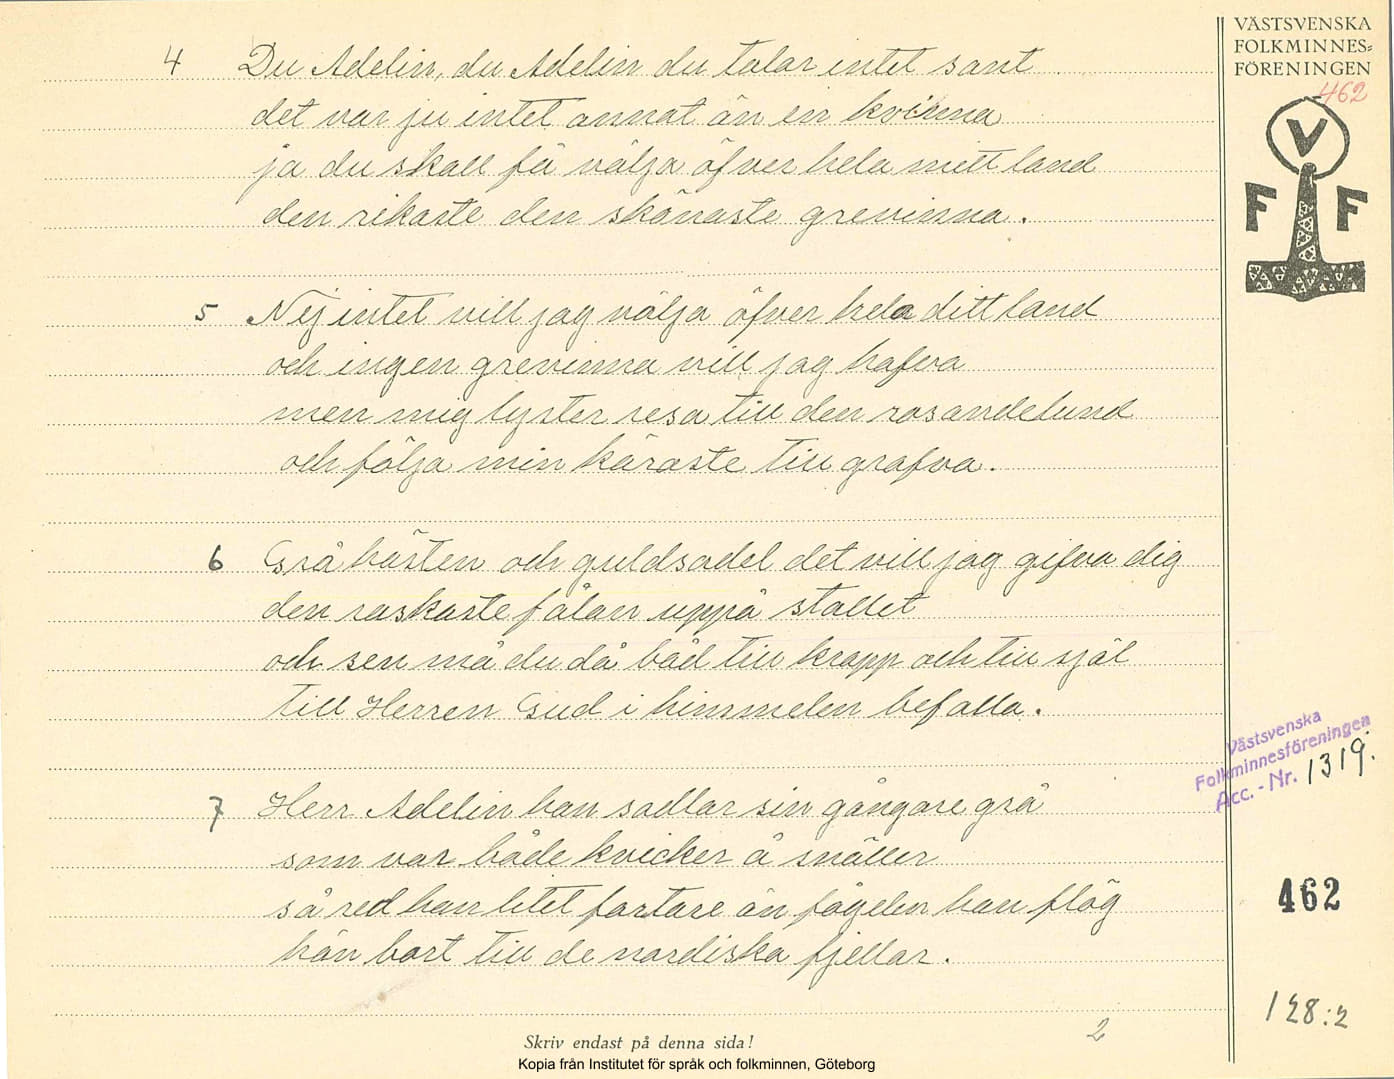 VÄSTSVENSKA
FOLKMINNES=
FÖRENINGEN
462
V
F F
4 Du Adelin, du Adelin du talar intet sant
det var ju intet annat än en kvinna
ja du skall få välja öfver hela mitt land
den rikaste den skönaste grevinna.
5 Nej intet vill jag välja öfver hela ditt land
och ingen grevinna vill jag hafva
men mig lyster resa till den rosandelund
och följa min käraste till grafva.
6 Grå hästen och guldsadel det vill jag gifva dig
den raskaste fålan uppå stallet
och sen må du då båd till kropp och till själ
till Herren Gud i himmelen befalla.
7 Herr Adelin han sadlar sin gångare grå
som var både kvicker å snäller
så red han litet fortare än fågelen han flög
hän bort till de nordiska fjellar.
Västsvenska
Folkminnesföreningen
Acc. - Nr. 1319.
462
128:2
2
Skriv endast på denna sida!
Kopia från Institutet för språk och folkminnen, Göteborg